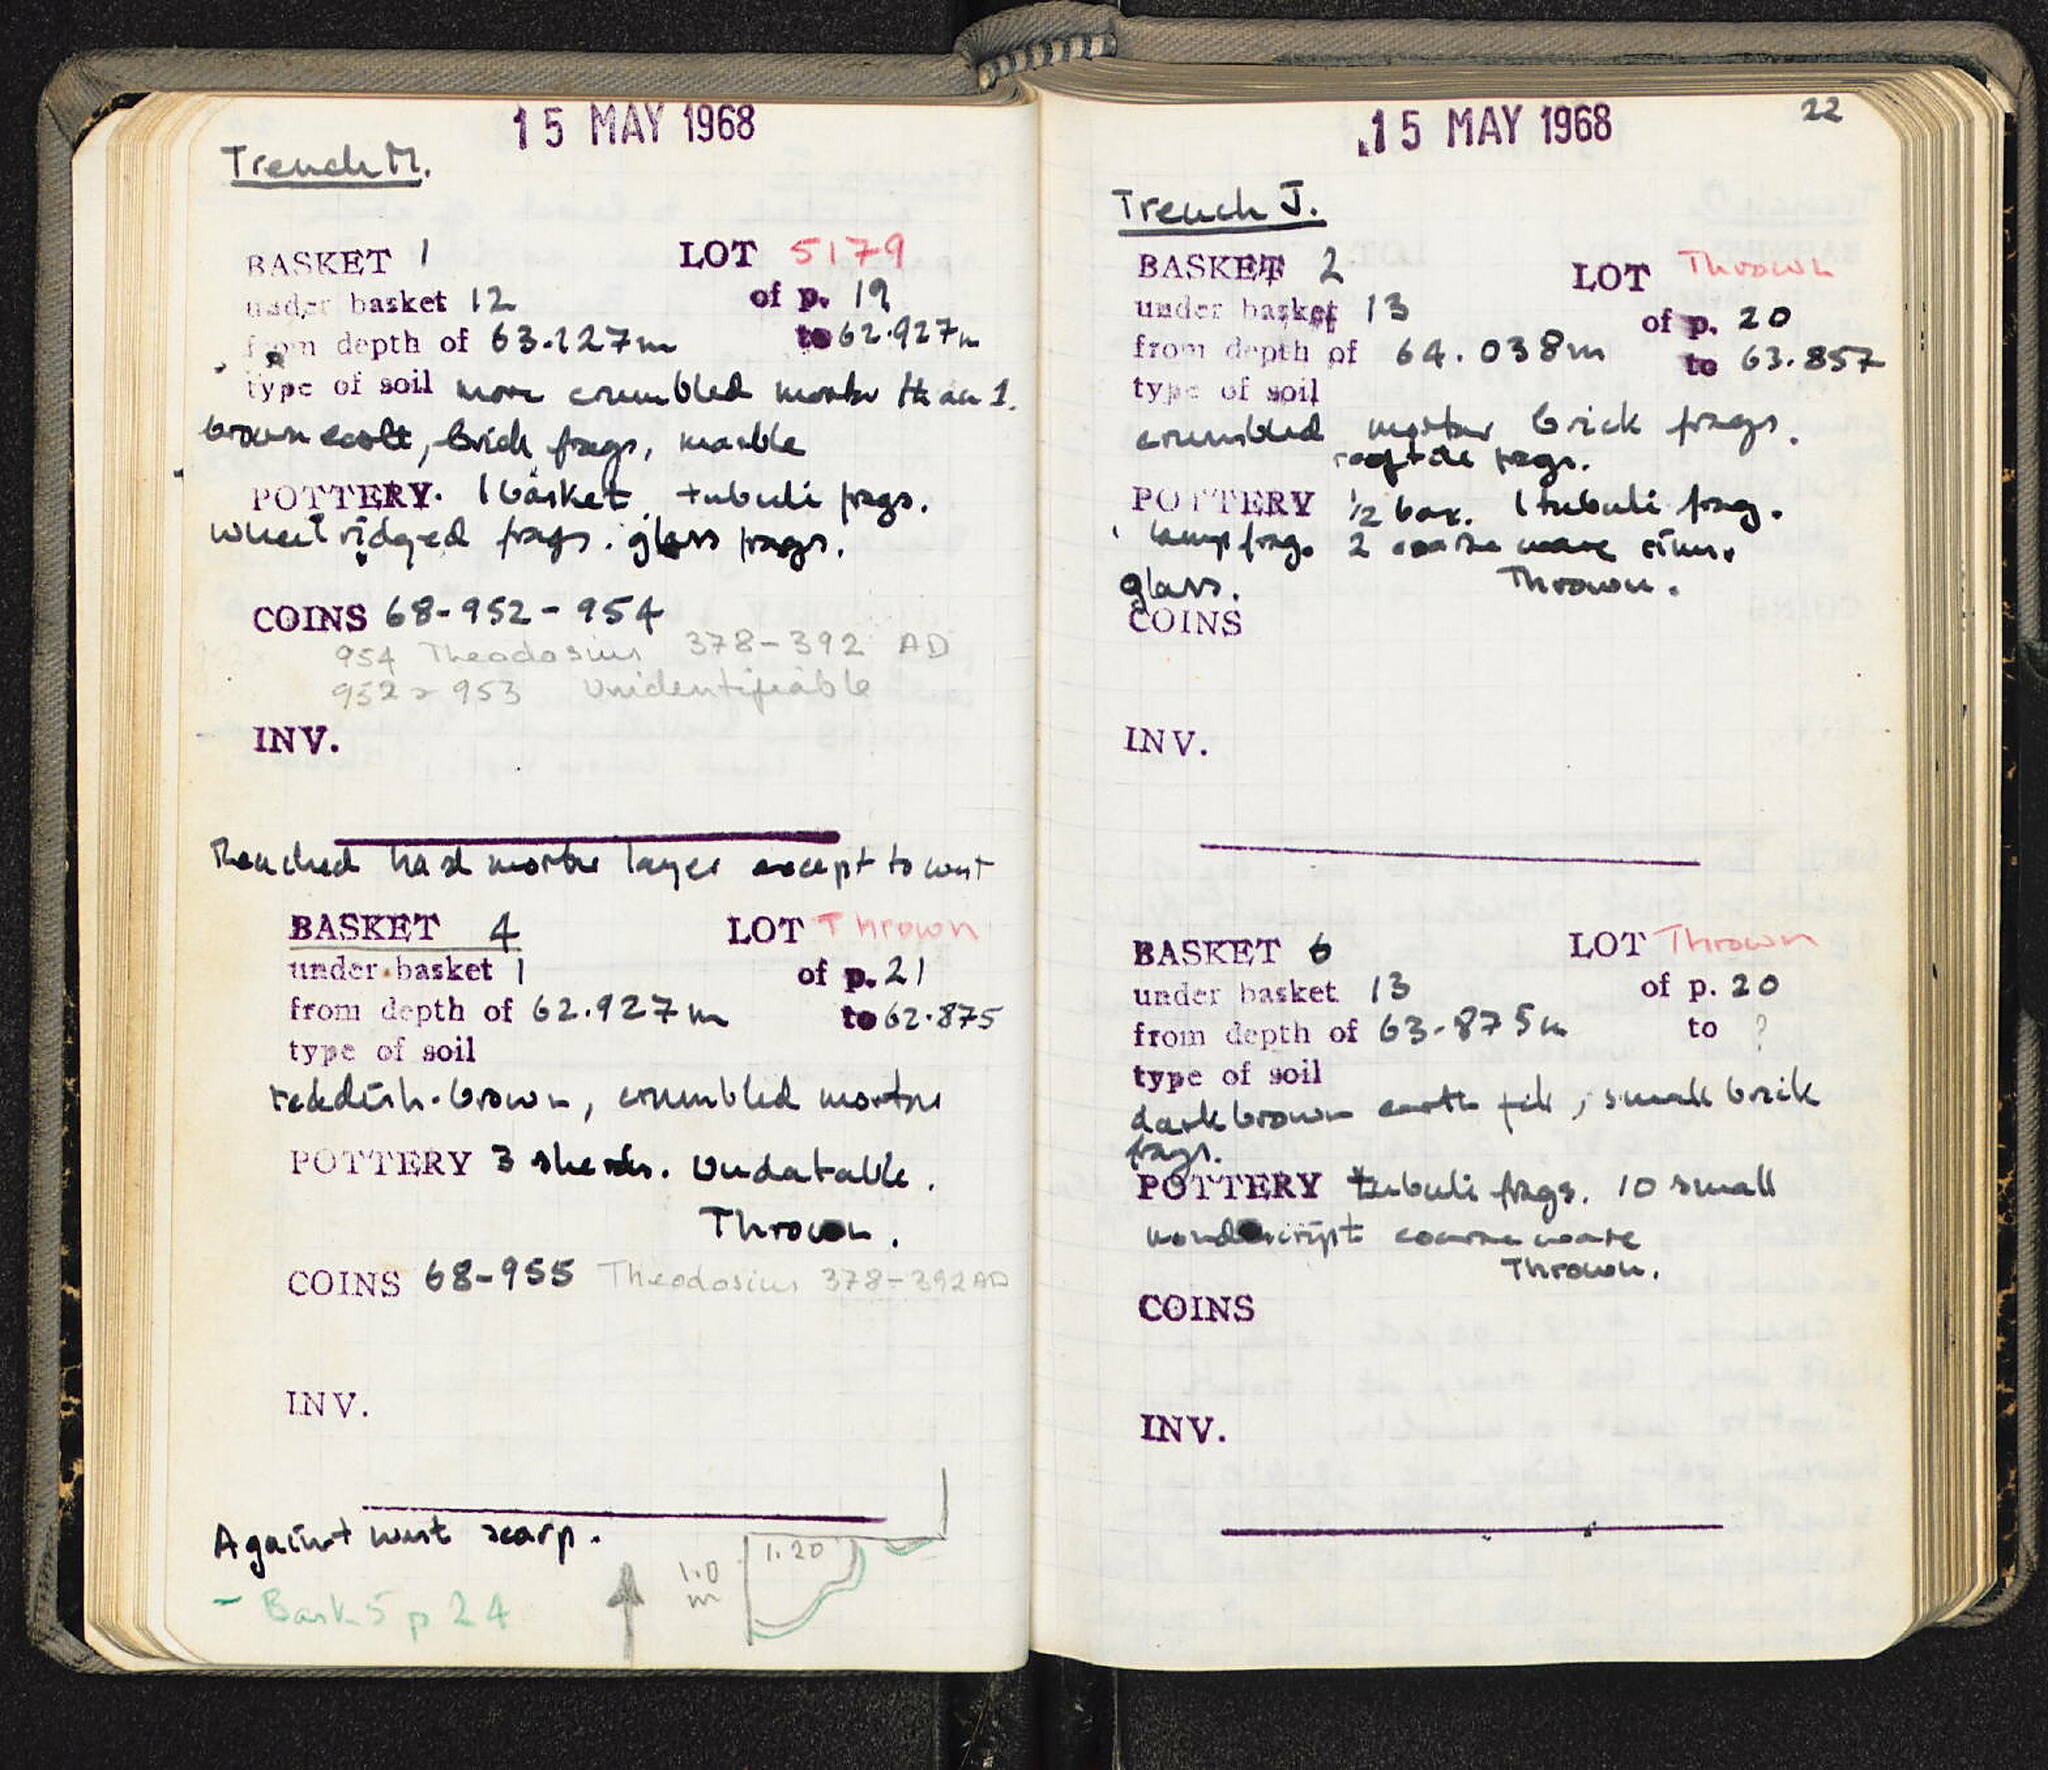 15 MAY 1968
Trench M.
BASKET 1 LOT 5179
under basket 12 of p. 19
from depth of 63.127m to 62.927m
type of soil more crumbled mortar than 1.
brown earth, brick frags, marble
POTTERY. 1 basket. tubuli frags.
wheel ridged frags. glass frags.
COINS 68-952-954
954 Theodosius 378-392 AD
952 > 953 Unidentifiable
INV.
Reached hard mortar layer except to west
BASKET 4 LOT Thrown
under basket 1 of p. 21
from depth of 62.927m to 62.875
type of soil
reddish-brown, crumbled mortar
POTTERY 3 sherds. Undatable.
Thrown.
COINS 68-955 Theodosius 378-392 AD
INV.
Against west scarp.
- Bask 5 p 24
1.0 m 1.20
22
15 MAY 1968
Trench J.
BASKET 2 LOT Thrown
under basket 13 of p. 20
from depth of 64.038m to 63.857
type of soil
crumbled mortar brick frags.
rooftile frags.
POTTERY 1/2 box. 1 tubuli frag.
1 lamp frag. 2 coarse ware rims.
glass. Thrown.
COINS
INV.
BASKET 6 LOT Thrown
under basket 13 of p. 20
from depth of 63.875m to ?
type of soil
dark brown earth fill, small brick
frags.
POTTERY tubuli frags. 10 small
nondescript coarse ware
Thrown.
COINS
INV.